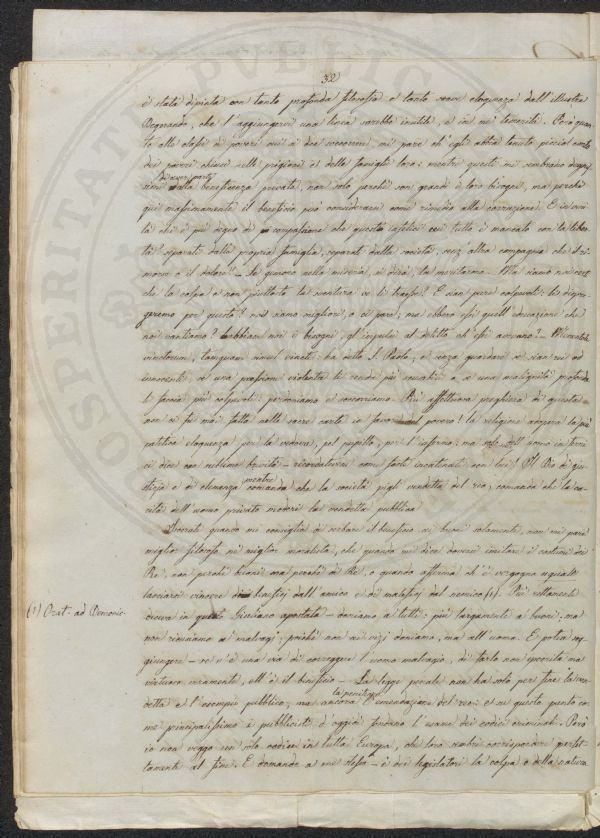 32
è stata dipinta con tanta profonda filosofia e tanta soave eloquenza dall'illustre
Degerando, che l'aggiungervi una linea sarebbe inutile, e in me temerità. Però quan
to alle classi di poveri cui si dee soccorrere, mi pare ch'egli abbia tenuto piccial conto
dei poveri chiusi nelle prigioni e delle famiglie loro: mentre questi mi sembrano degnis
simi di aver parte alla beneficenza privata, non solo perchè son grandi i loro bisogni, ma perchè
qui massimamente il beneficio può considerarsi come rimedio alla corruzione. E in veri
tà chi è più degno di compassione che questi infelici cui tutto è mancato con la liber
tà? separati dalla propria famiglia, separati dalla società, senz'altra compagnia che il ri
morso e il dolore? – Se gemono nella miseria, si dirà, la meritarono. – Ma siamo noi certi
che la colpa e non piuttosto la sventura ve li trasse? E sian pure colpevoli: li disprez
zeremo per questo? noi siamo migliori, o ci pare; ma ebbero essi quell'educazione che
noi vantiamo? abbiam noi i bisogni, gl'impulsi al delitto ch'essi avevano? – Mementote
vinctorum, tamquam simul vincti: ha detto S. Paolo, e senza guardare se sian rei od
innocenti, se una passione violenta li renda più scusabili o se una malignità profonda
li faccia più colpevoli: perdoniamo e soccorriamo. Più affettuosa preghiera di questa
non si fu mai fatta nelle sacre carte in favore del povero! la religione adopera la più
patetica eloquenza per la vedova, pel pupillo, per l'infermo: ma dell'uomo in ferri
ci dice con sublime brevità – ricordatevene come foste incatenati con lui! Il Dio di giu
stizia e di clemenza mentre comanda che la società pigli vendetta del reo, comanda che la ca
rità dell'uomo privato moderi la vendetta pubblica.
Isocrate quando mi consiglia di serbare il beneficio ai buoni solamente, non mi pare
miglior filosofo nè miglior moralista, che quando mi dice doversi imitare i costumi dei
Re, non perchè buoni ma perchè di Re, o quando afferma ch'è vergogna eguale
lasciarsi vincere dai benefizj dall'amico e dai malefizj dal nemico (1). Più rettamente
diceva in questo Giuliano apostata – doniamo a tutti: più largamente ai buoni, ma
non rinuniamo ai malvagi; poichè non ai vizi doniamo, ma all'uomo. E potea ag
giungere – se v'è una via di correggere l'uomo malvagio, di farlo non ipocrita ma
virtuoso veramente, ell'è il benefizio – La legge penale non ha solo per fine la ven
detta e l'esempio pubblico, ma ancora la penitenza l'emendazione del reo: e su questo punto co
me principalissimo i pubblicisti d'oggidì fondano l'esame dei codici criminali. Però
io non veggo un solo codice in tutta Europa, che loro sembri corrispondere perfet
tamente al fine. E domando a me stesso – è dei legislatori la colpa o della natura
(1) Orat. ad Demonic.